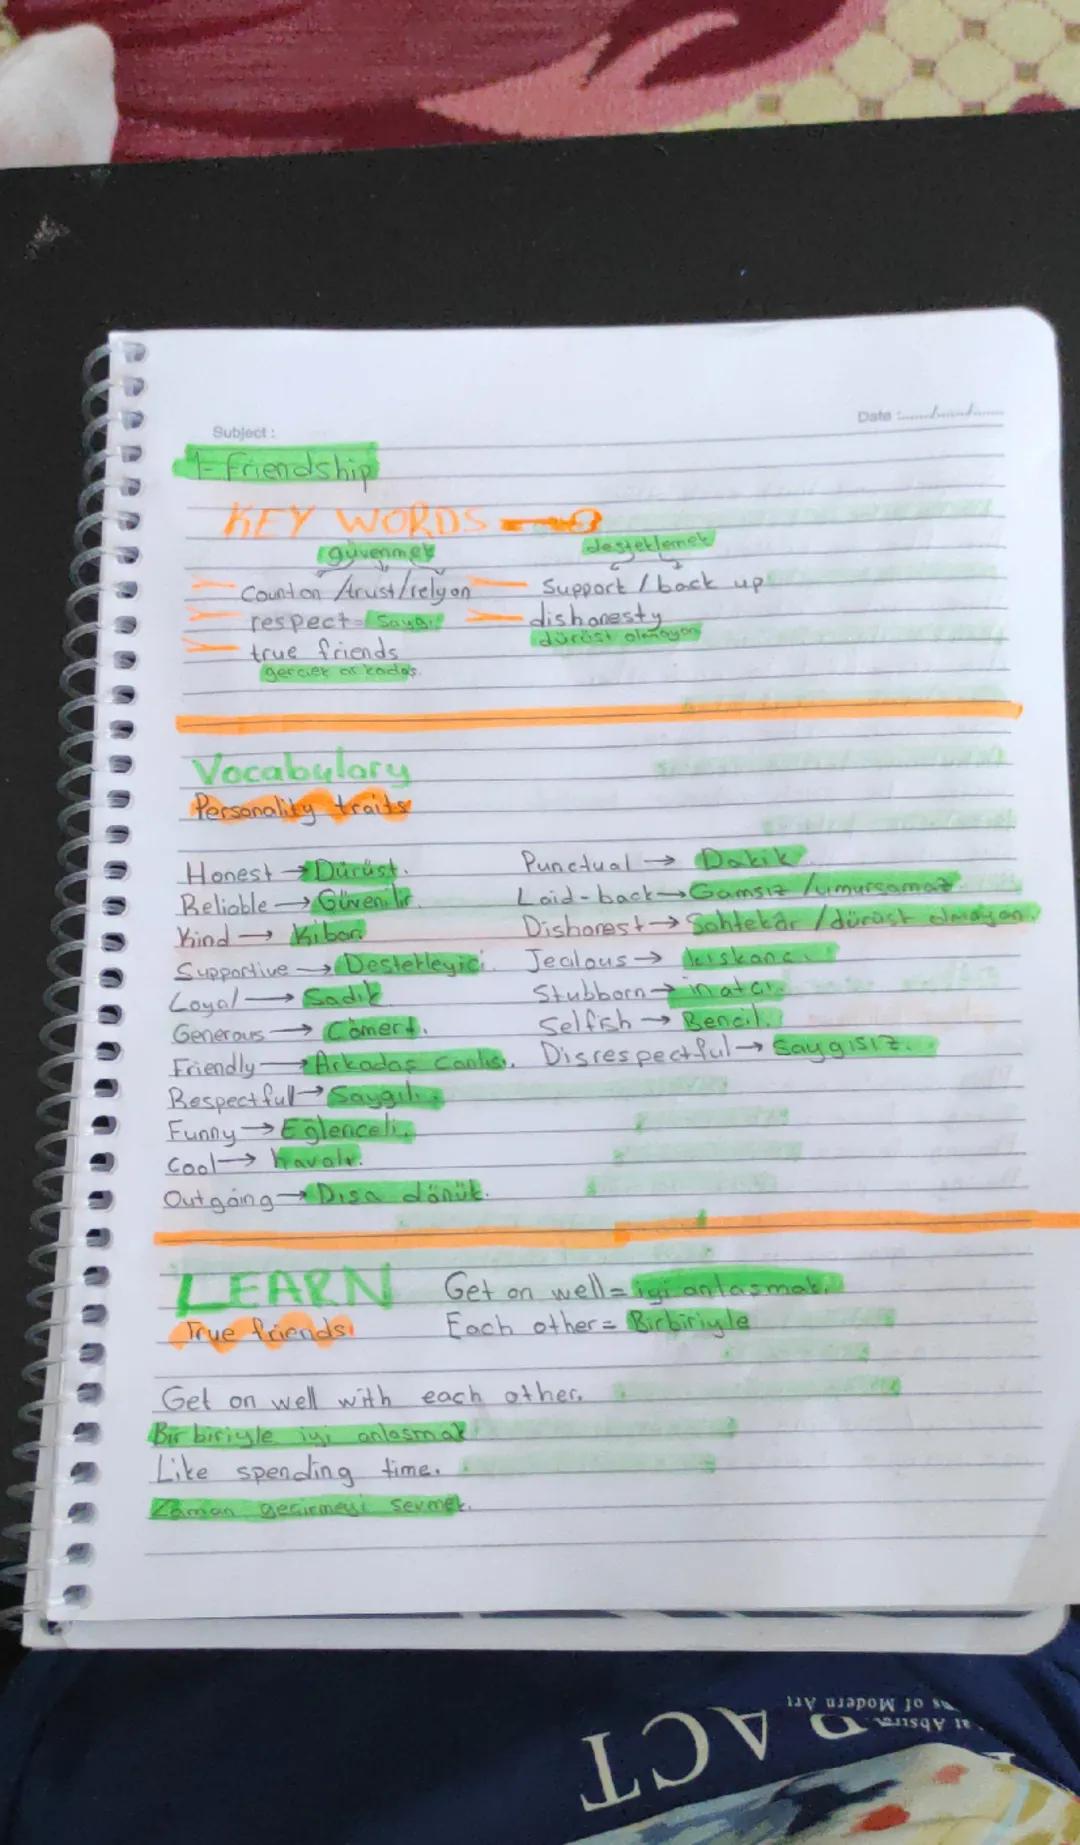 Subject :
Date :....../....../......
1- Friendship
KEY WORDS
güvenmek
desteklemek
Count on /trust/rely on
Support / back up
respect = Saygı
dishonesty
dürüst olmayan
true friends
gerçek arkadaş.
Vocabulary
Personality traits
Honest → Dürüst.
Reliable → Güvenilir.
Kind → Kibar.
Supportive → Destekleyici.
Loyal → Sadık
Generous → Cömert.
Friendly → Arkadaş Canlısı.
Respectful → Saygılı.
Funny → Eğlenceli.
Cool → havalı.
Outgoing → Dışa dönük.
Punctual → Dakik
Laid-back → Gamsız /umursamaz.
Dishonest → Sahtekâr /dürüst olmayan.
Jealous → kıskanç.
Stubborn → inatçı.
Selfish → Bencil.
Disrespectful → Saygısız.
LEARN
True friends
Get on well = iyi anlaşmak.
Each other = Birbiriyle
Get on well with each other.
Bir biriyle iyi anlaşmak
Like spending time.
Zaman geçirmeyi sevmek.
of Modern Art
at Abstra
ACT